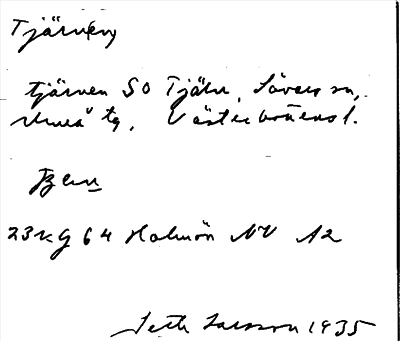 Tjärv(en)
tjärven SO Tjäln, Sävars sn,
Umeå tg, Västerbottens l.
Ben
23K g 64 Holmön NV A2
Seth Larsson 1935